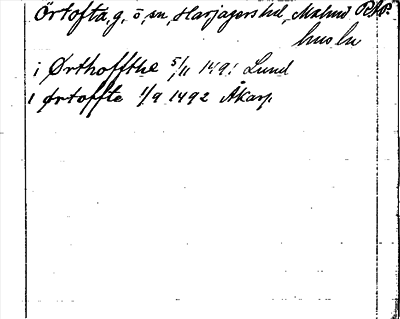 Örtofta, g, ö, sn, Harjagers hd, Malmö
hus ln
i Ørthoffthe 5/11 1491 Lund
i ørtoffte 1/9 1492 Åkarp.